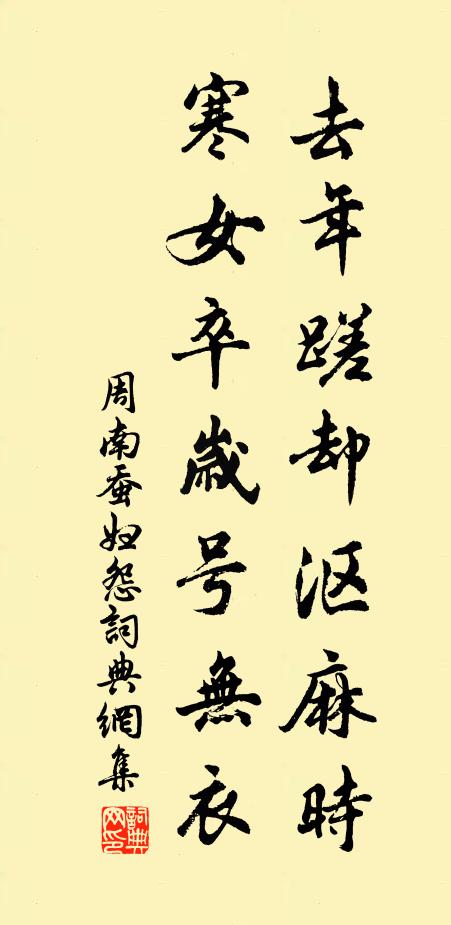 去年蹉却沤麻時
寒女卒歲号無衣
周南蚕妇怨詞典網集
詞典网印